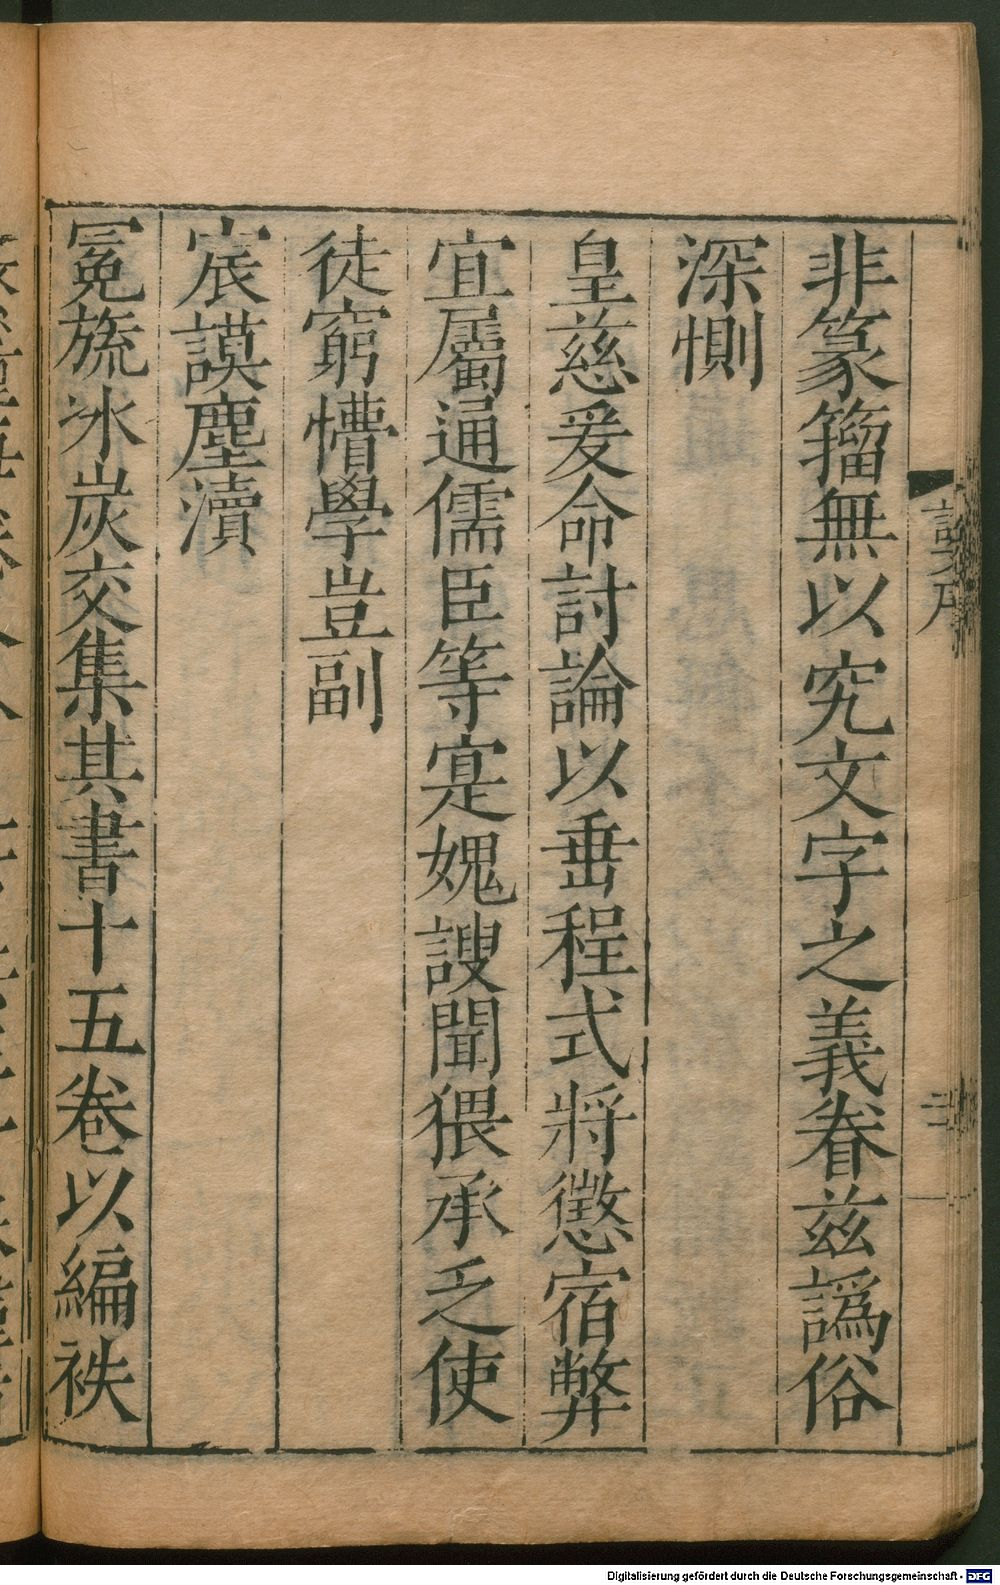 非篆籀無以究文字之義眷兹譌俗
深惻
皇慈爰命討論以垂程式將懲宿弊
宜屬通儒臣等寔媿謏聞猥承乏使
徒窮懵學豈副
宸謨塵瀆
冕旒冰炭交集其書十五卷以編袟
Digitalisierung gefördert durch die Deutsche Forschungsgemeinschaft - DFG